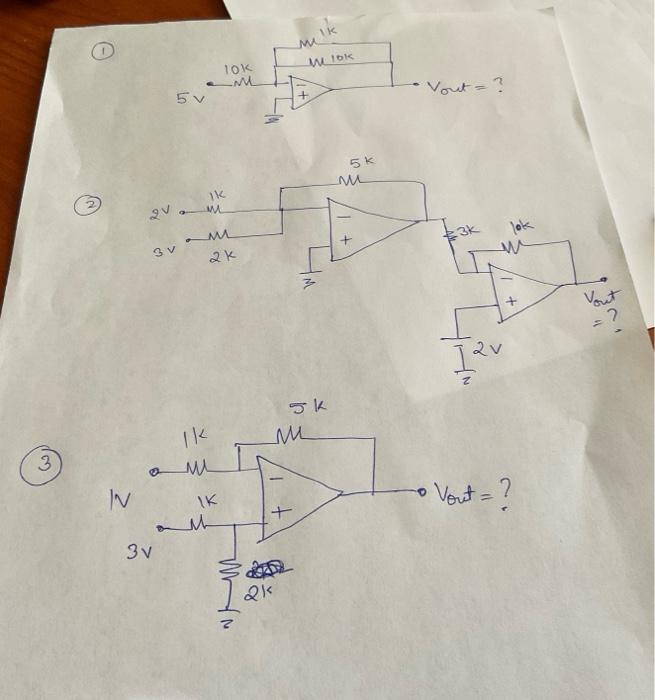 ①
1K
10K
10K
5V
-
+
Vout = ?
②
5K
1K
2V
3V
2K
-
+
3K
10K
-
+
Vout
= ?
2V
③
5K
1K
1V
1K
3V
-
+
Vout = ?
2K